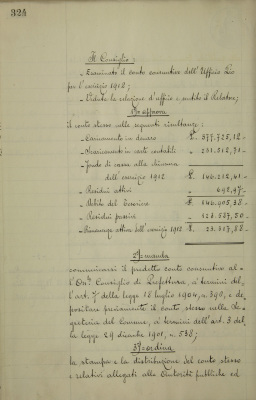 324
Il Consiglio:
- Esaminato il conto consuntivo dell'Ufficio
per l'esercizio 1912;
- Veduta la relazione d'ufficio e sentito il Relatore;
1º approva
il conto stesso nelle seguenti risultanze:
- Caricamento in denaro £. 377.725,12
- Fondo di cassa alla chiusura
dell'esercizio 1912 £. 146.212,41
- Residui attivi " 692,97
£. 146.905,38
- Residui passivi " 123.887,50
- Rimanenza attiva dell'esercizio 1912 £. 23.017,88
2º manda
comunicarsi il predetto conto consuntivo al-
l'On. Consiglio di Prefettura, ai termini del-
l'art. 7 della legge 18 luglio 1904, n. 390, e de-
positare previamente il conto stesso nella Se-
greteria del Comune, ai termini dell'art. 3 del-
la legge 29 dicembre 1901, n. 538;
3º ordina
la stampa e la distribuzione del conto stesso
e relativi allegati alle Autorità pubbliche ed